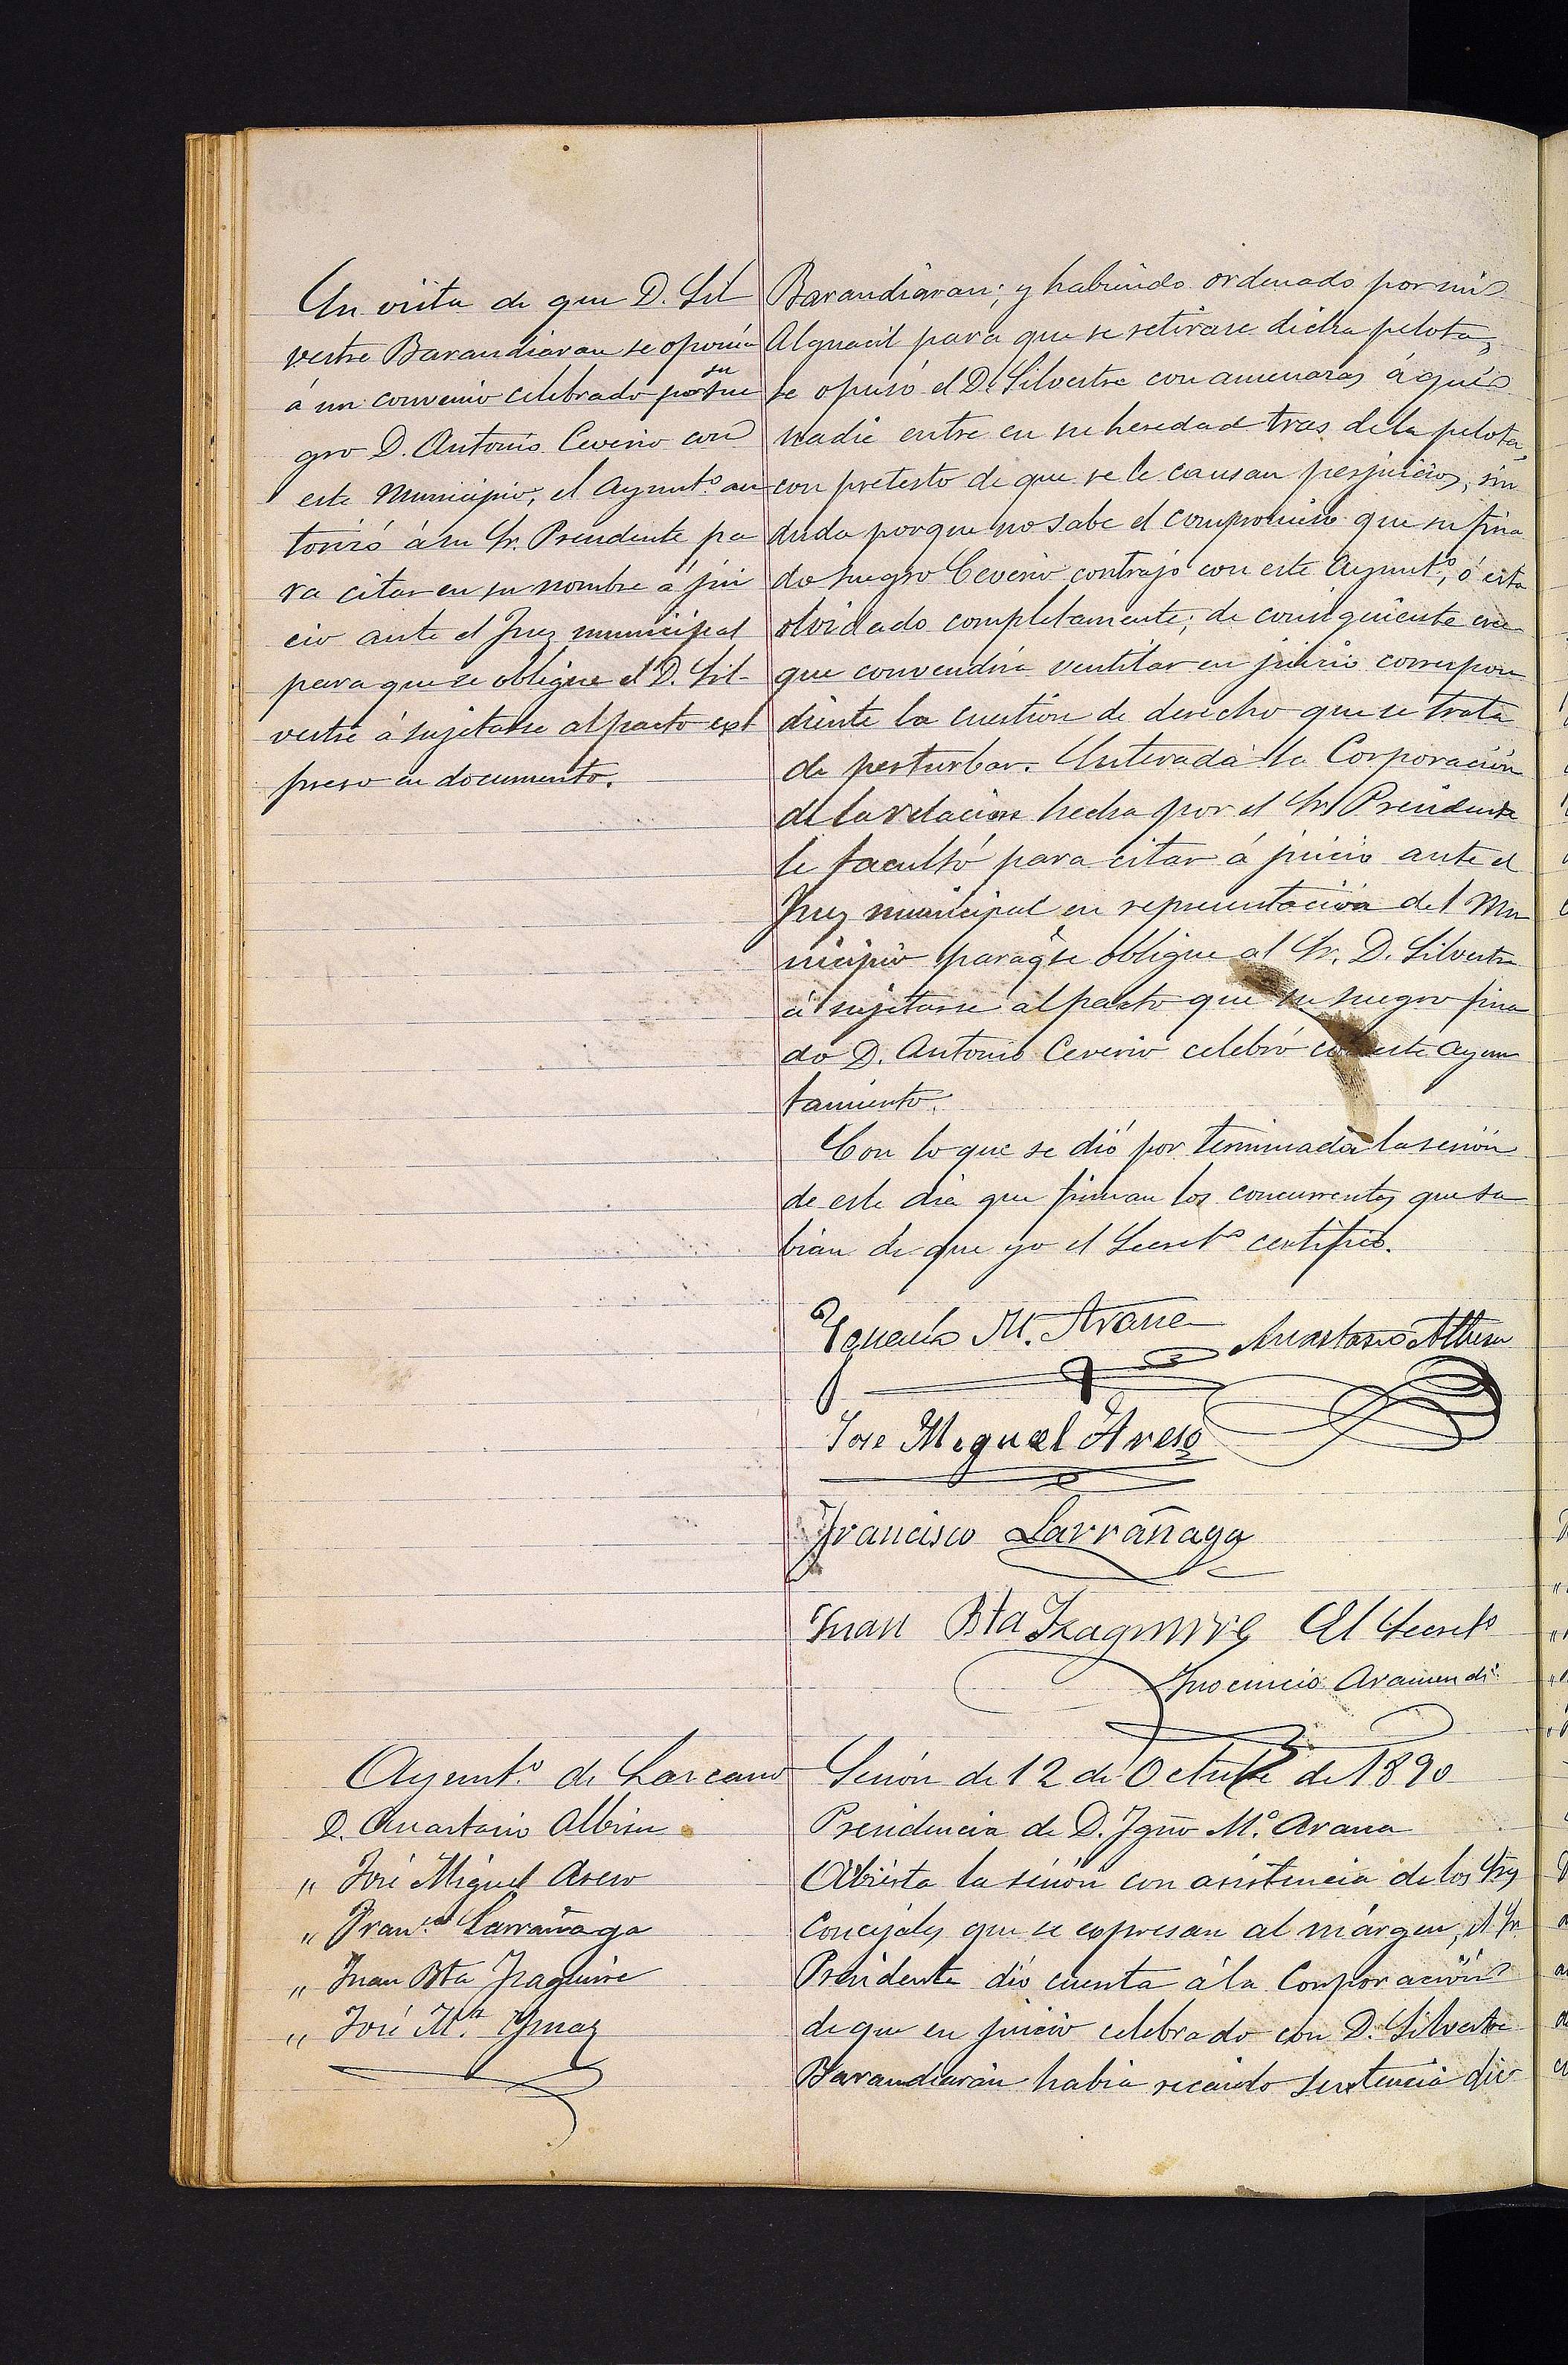 En vista de que D. Sil
vestre Barandiaran se oponía
á un convenio celebrado por su sue
gro D. Antonio Ceverio con
este Municipio, el Ayuntº au
torizó á su Sr. Presidente pa
ra citar en su nombre á jui
cio ante el Juez municipal
para que se obligue el D. Sil-
vestre á sujetarse al pacto ex
preso en documento.
Barandiaran; y habiendo ordenado por mi
Alguacil para que se retirase dicha pelota,
se opuso el D. Silvestre con amenazas á que
nadie entre en su heredad tras de la pelota,
con pretesto de que se le causan perjuicios, sin
duda porque no sabe el compromiso que su fina
do suegro Ceverio contrajo con este Ayuntº, ó esta
olvidado completamente; de consiguiente cree
que convendria ventilar en juicio correspon
diente la cuestion de derecho que se trata
de perturbar. Enterada la Corporación
de la relacion hecha por el Sr. Presidente
le facultó para citar á juicio ante el
Juez municipal en representación del Mu
nicipio para q̃ se obligue al Sr. D. Silvestre
á sujetarse al pacto que su suegro fina
do D. Antonio Ceverio celebró con este Ayun
tamiento.
Con lo que se dió por terminada la sesión
de este dia que firman los concurrentes que sa
bian de que yo el Secretº certifico.
Ygnacio M. Arana Anastasio Albisu
Jose Miguel Areso
Francisco Larrañaga
Juan Bta Izaguirre El Secretº
Inocencio Aramendi
Ayuntº de Lazcano
D. Anastasio Albisu
" José Miguel Areso
" Franco Larrañaga
" Juan Bta Izaguirre
" José Mª Ymaz
Sesión de 12 de Octubre de 1890
Presidencia de D. Ygnº Mº Arana
Abierta la sesión con asistencia de los Srs
Concejales que se expresan al márgen, el Sr.
Presidente dio cuenta á la Corporación
de que en juicio celebrado con D. Silvestre
Barandiarán habia recaido sentencia dic